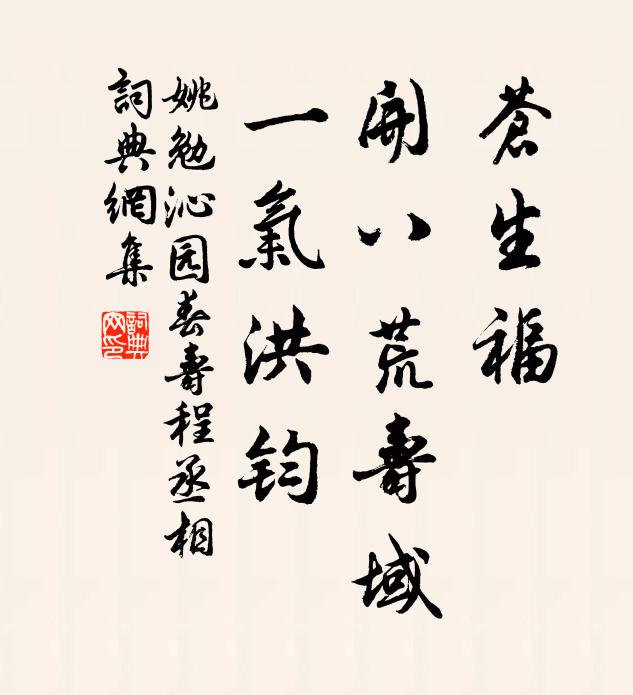 蒼生福
開八荒壽域
一氣洪鈞
姚勉沁园春壽程丞相
詞典網集
詞典网印